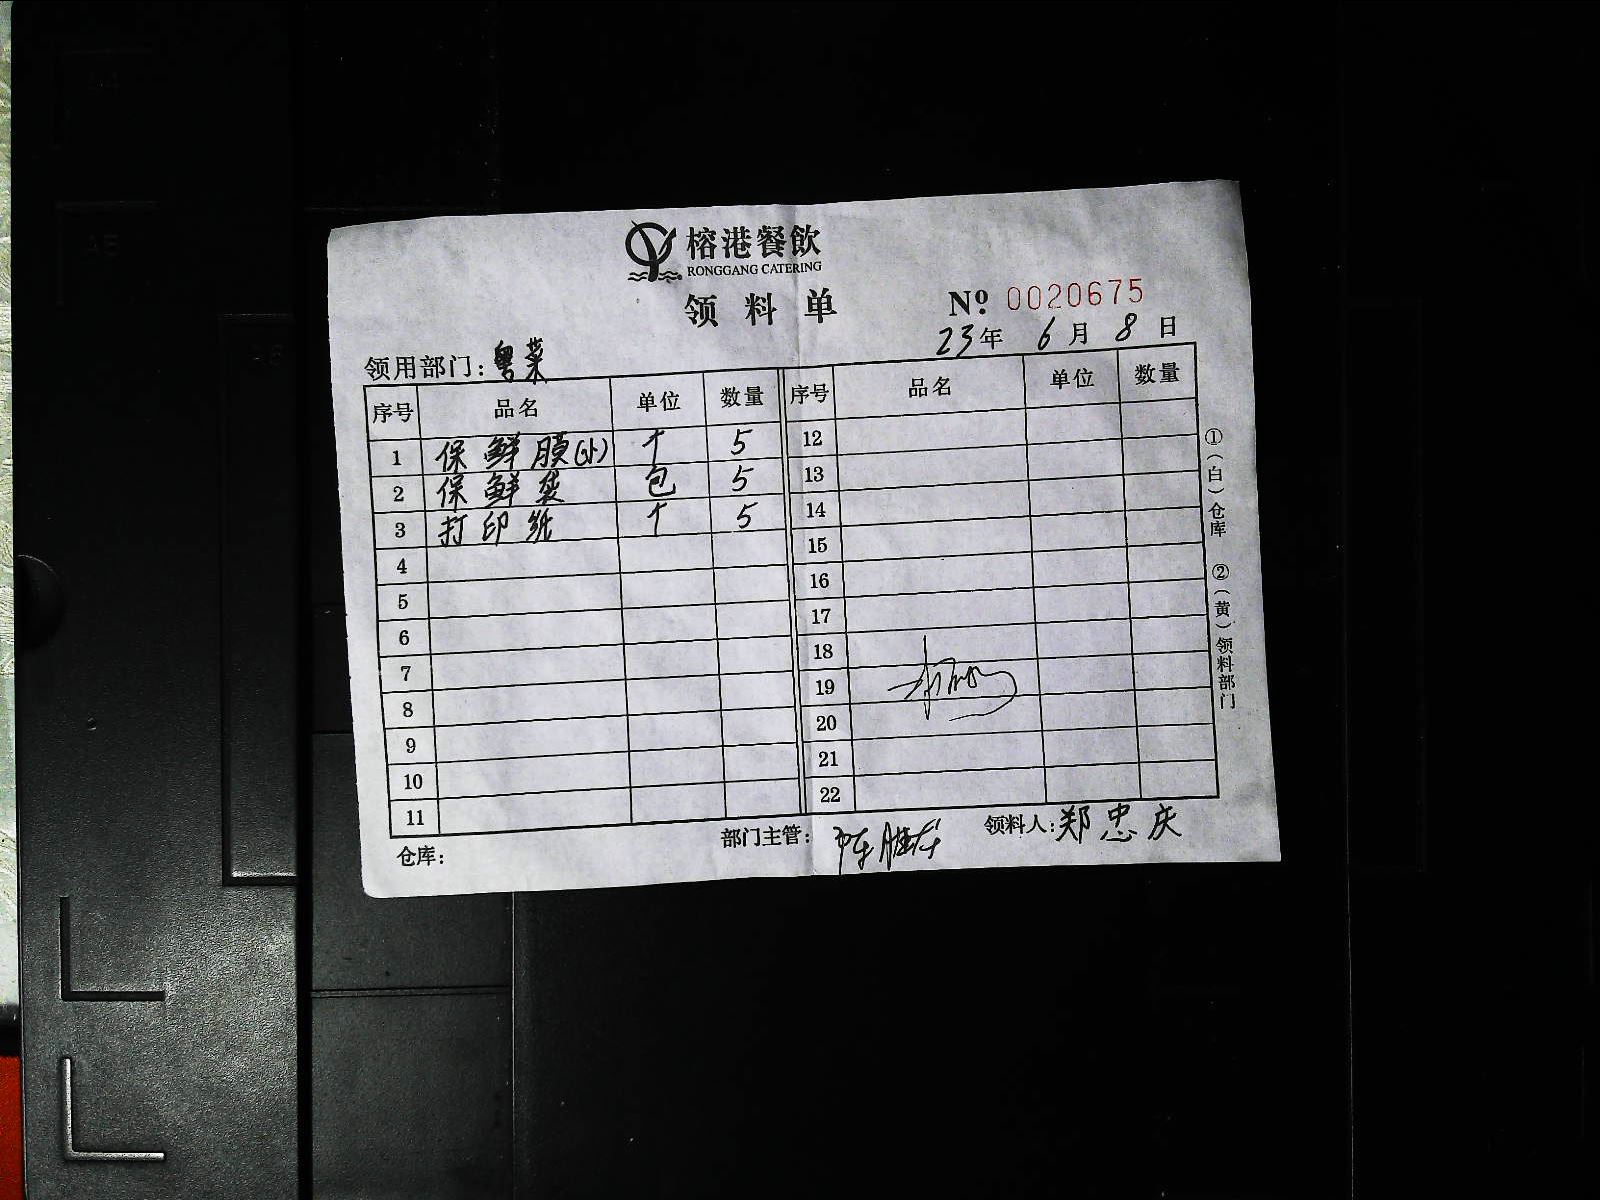 榕港餐飲
RONGGANG CATERING
领料单
№ 0020675
23年 6月 8日
领用部门：粤菜
序号 品名 单位 数量 序号 品名 单位 数量
1 保鲜膜(小) 个 5 12
2 保鲜袋 包 5 13
3 打印纸 个 5 14
4 15
5 16
6 17
7 18
8 19
9 20
10 21
11 22
仓库： 部门主管： 领料人：郑忠庆
①（白）仓库 ②（黄）领料部门
A5